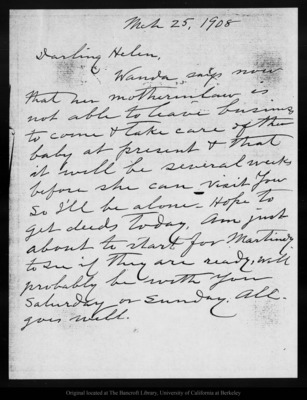 Mch 25, 1908
Darling Helen,
Wanda says now
that her motherinlaw is
not able to leave business
to come & take care of the
baby at present & that
it will be several weeks
before she can visit you
So I'll be alone. Hope to
get deeds today. Am just
about to start for Martinez
to see if they are ready, will
probably be with you
Saturday or Sunday. All
goes well.
Original located at The Bancroft Library, University of California at Berkeley